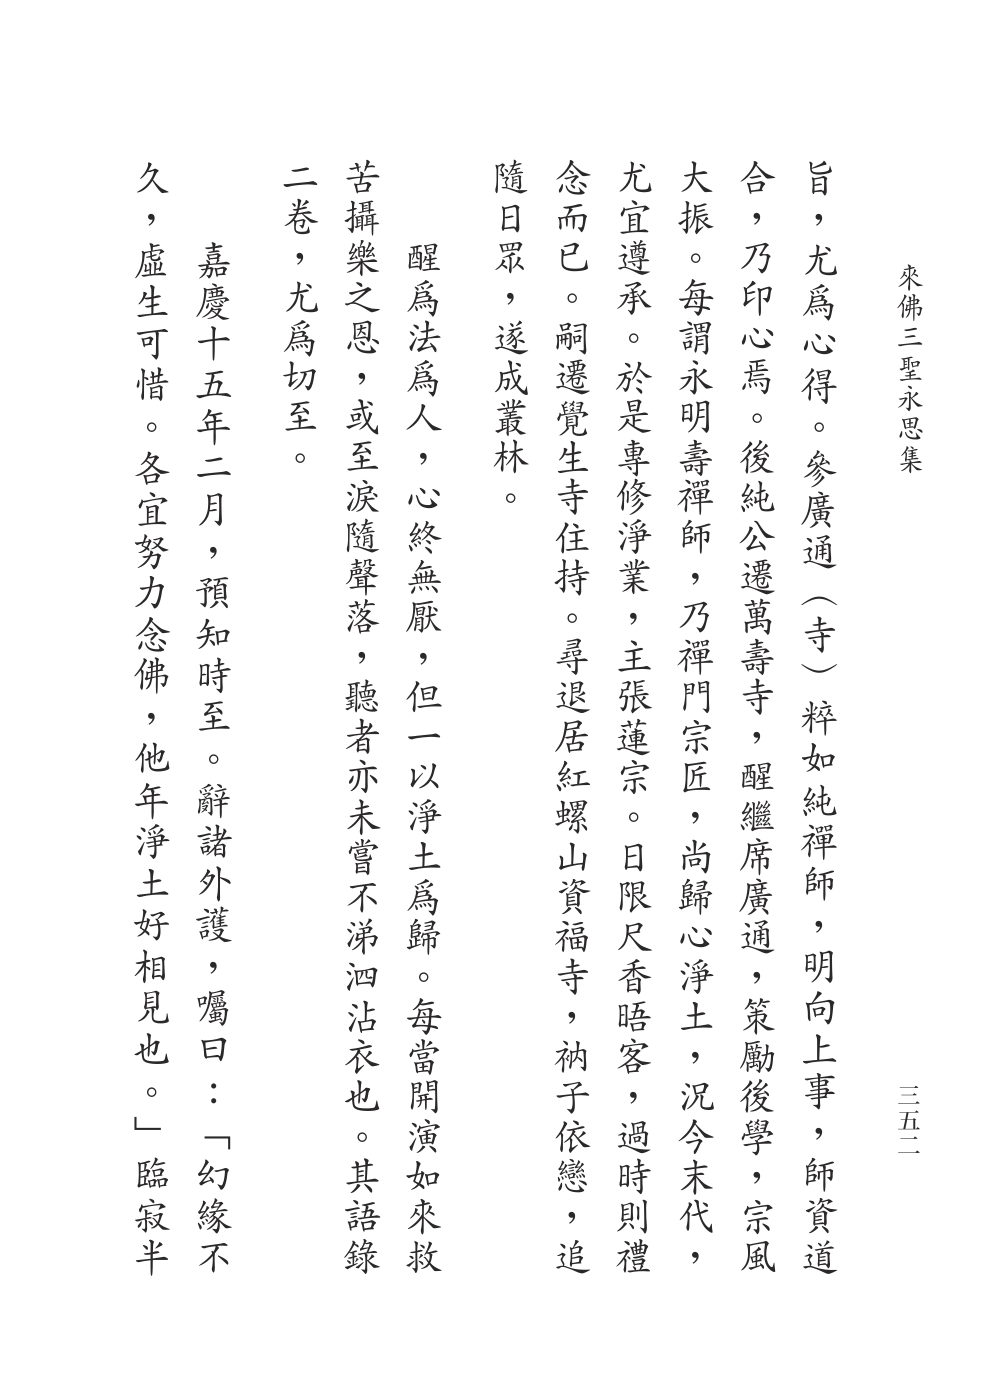 來佛三聖永思集
三五二
旨，尤爲心得。參廣通（寺）粹如純禪師，明向上事，師資道
合，乃印心焉。後純公遷萬壽寺，醒繼席廣通，策勵後學，宗風
大振。每謂永明壽禪師，乃禪門宗匠，尚歸心淨土，況今末代，
尤宜遵承。於是專修淨業，主張蓮宗。日限尺香晤客，過時則禮
念而已。嗣遷覺生寺住持。尋退居紅螺山資福寺，衲子依戀，追
隨日眾，遂成叢林。
醒爲法爲人，心終無厭，但一以淨土爲歸。每當開演如來救
苦攝樂之恩，或至淚隨聲落，聽者亦未嘗不涕泗沾衣也。其語錄
二卷，尤爲切至。
嘉慶十五年二月，預知時至。辭諸外護，囑曰：「幻緣不
久，虛生可惜。各宜努力念佛，他年淨土好相見也。」臨寂半